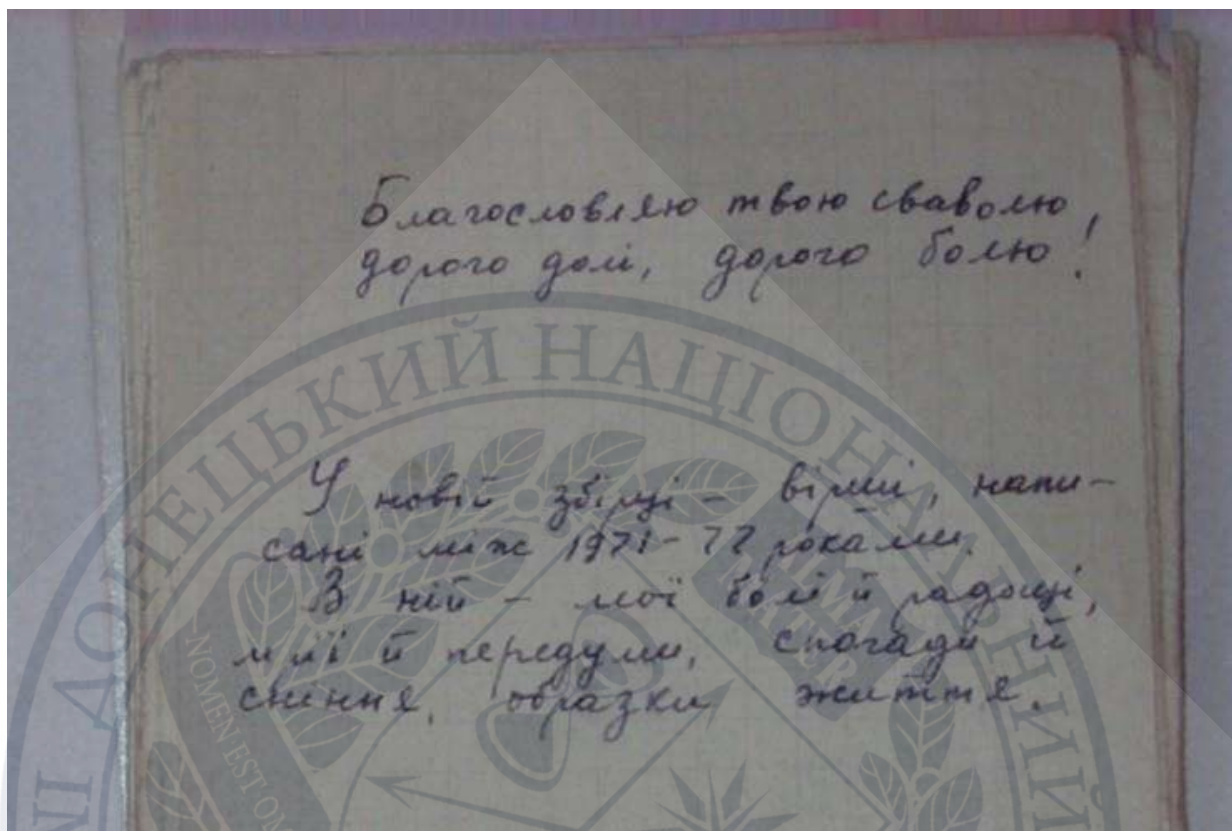 Благословляю твою сваволю,
дорого долі, дорого болю!
У новій збірці – вірші, напи-
сані між 1971–77 роками.
В ній – мої болі й радощі,
мрії й передуми, спогади й
сніння, образки життя.
ДОНЕЦЬКИЙ НАЦІОНАЛЬНИЙ
NOMEN EST OMEN